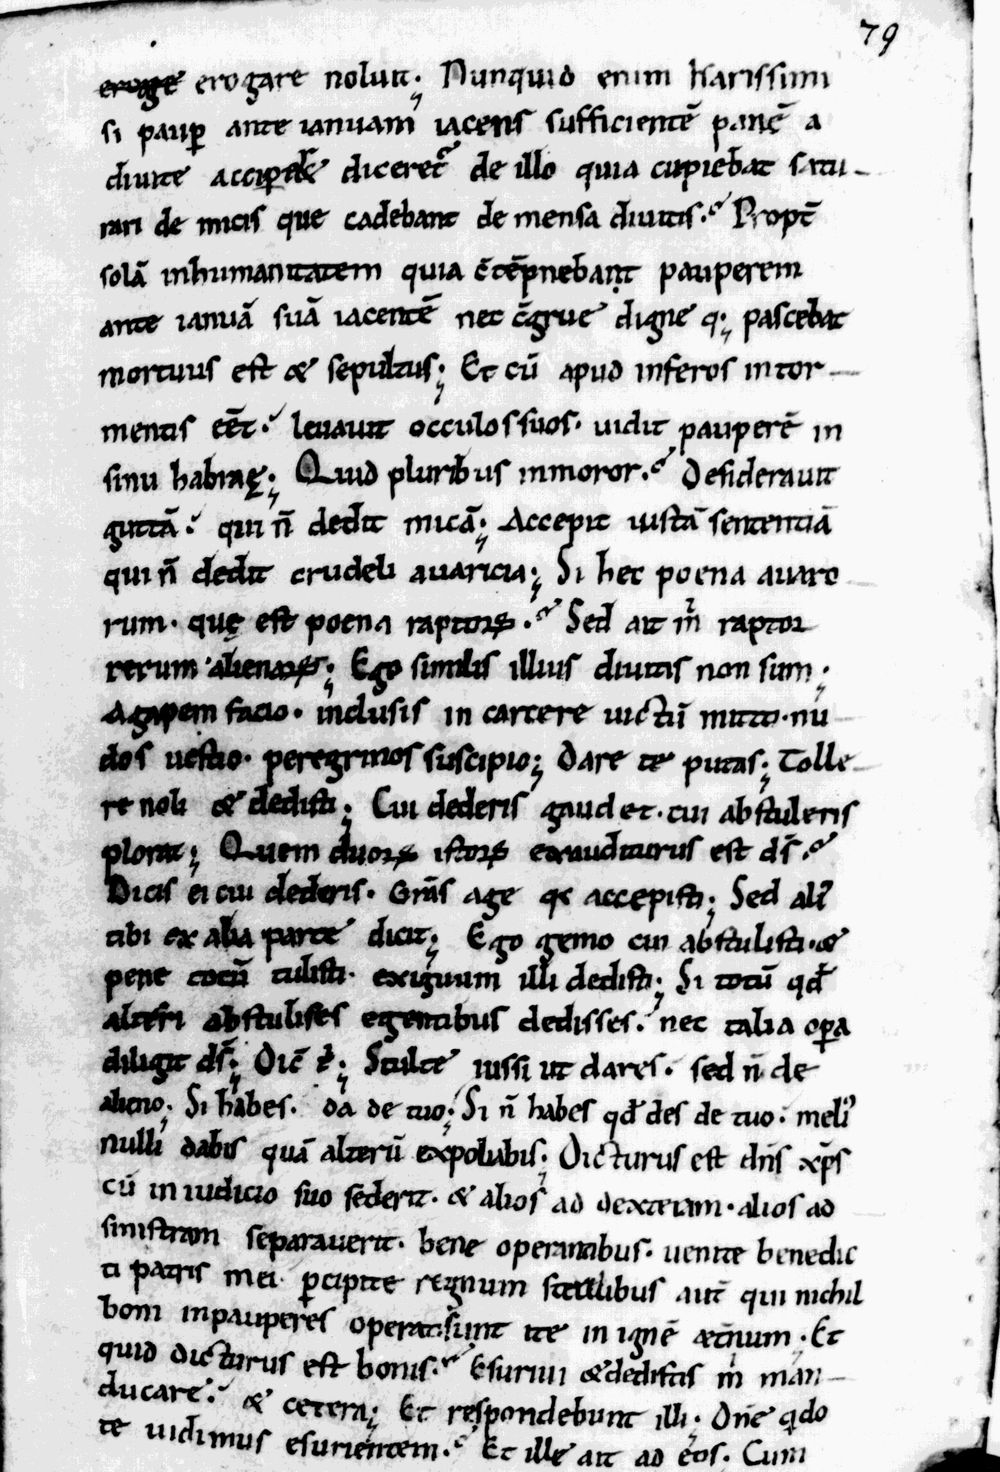 79
eroge erogare noluit; Nunquid enim karissimi
si paup̱ ante ianuam iacens sufficientē panē a
diuite acciperet diceret᷑ de illo quia cupiebat satu-
rari de micis que cadebant de mensa diuitis. Propt̄
solā inhumanitatem quia c̄tēpnebant pauperem
ante ianuā suā iacentē nec c̄grue digne q; pascebat
mortuus est & sepultus; Et cū apud inferos in tor-
mentis eēt. leuauit occulos suos. uidit pauperē in
sinu habraę; Quid pluribus inmoror. Desiderauit
guttā. qui n̄ dedit micā; Accepit iustā sententiā
qui n̄ dedit crudeli auaricia; Si hec poena auaro
rum. quę est poena raptoꝝ. Sed ait m̍ raptor
rerum alienaꝝ; Ego similis illius diuitis non sum;
Agapem facio. inclusis in carcere uictū mitto. nu
dos uestio. peregrinos suscipio; Dare te putas; Tolle-
re noli & dedisti; Cui dederis gaudet. cui abstuleris
plorat; Quem duoꝝ istoꝝ exauditurus est ds̄.
Dicis ei cui dederis. Grās age qꝫ accepisti; Sed alt̄
tibi ex alia parte dicit; Ego gemo cui abstulisti. &
pene totū tulisti. exiguum illi dedisti; Si totū qđ
alteri abstulisses egentibus dedisses. nec talia oꝑa
diligit ds̄; Dic̄ t̍; Stulte iussi ut dares. sed n̄ de
alieno; Si habes. da de tuo; Si n̄ habes qđ des de tuo. meli᾿
nulli dabis quā alterū expoliabis; Dicturus est dn̄s xp̄s
cū in iudicio suo sederit. & alios ad dexteram. alios ad
sinistram separauerit. bene operantibus. uenite benedic
ti patris mei. ꝑcipite regnum sterilibus aut̄ qui nichil
boni in pauperes operati sunt ite in ignē æt̄num. Et
quid dicturus est bonis. Esuriui & dedistis m̍ man-
ducare. & cetera; Et respondebunt illi; Dn̄e q̄do
te uidimus esurientem. Et ille ait ad eos. Cum